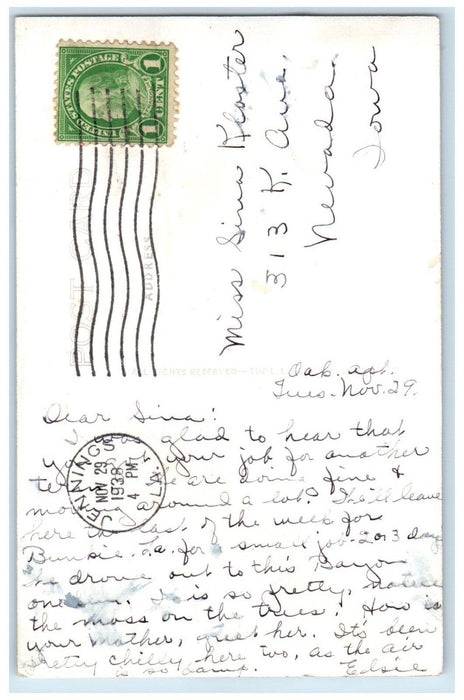 UNITED STATES POSTAGE
1 CENT 1
POST CARD
ADDRESS
Miss Sina Kloster
313 K. Ave.
Nevada,
Iowa
ALL RIGHTS RESERVED
JENNINGS
NOV 29
4 PM
1938
LA.
Oak apt.
Tues. Nov. 29.
Dear Sina:
glad to hear that
your job for another
We are doing fine &
moving around a lot. We'll leave
here the last of the week for
Bunkie, La. for a small job 2 or 3 days
We drove out to this Bayou
one. It is so pretty, notice
the moss on the trees! How is
your Mother, greet her. It's been
pretty chilly here too, as the air
is so damp. Elsie